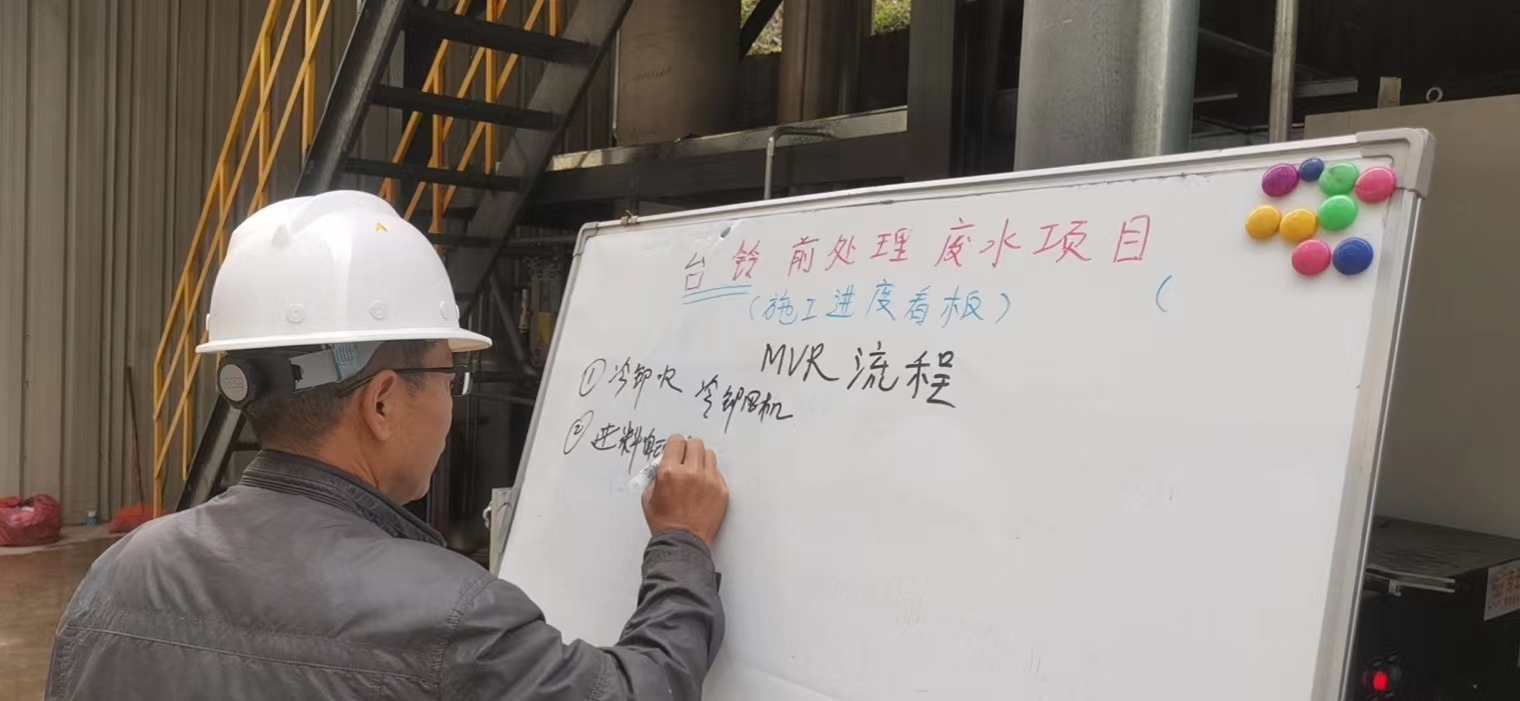 台铃前处理废水项目
(施工进度看板) (
MVR流程
①冷却水 冷却风机
②进料电